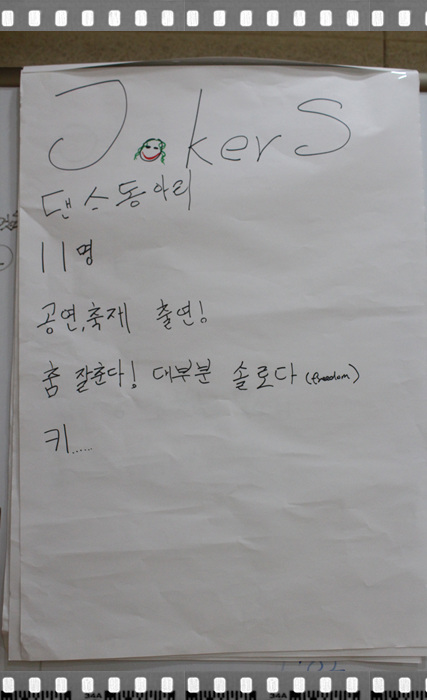 JokerS
댄스동아리
11명
공연,축제 출연!
춤 잘춘다! 대부분 솔로다 (freedom)
키......